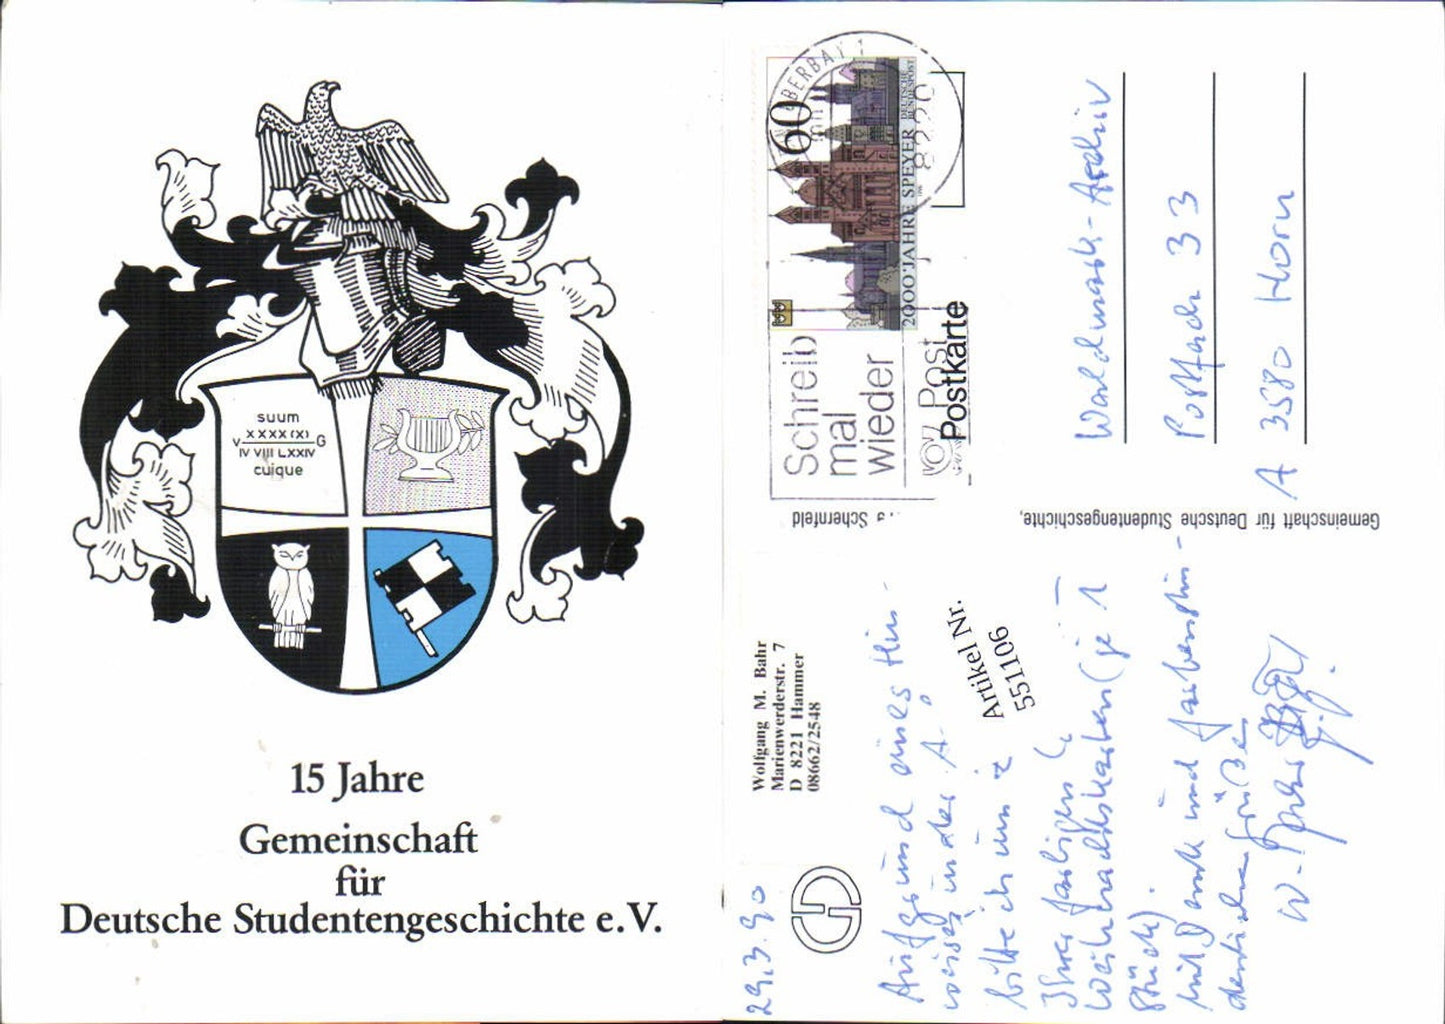 suum
XXXX (X)
V G
IV VIII LXXIV
cuique
15 Jahre
Gemeinschaft
für
Deutsche Studentengeschichte e.V.
60
DEUTSCHE
BUNDESPOST
2000 JAHRE SPEYER
OBERBAY 1
8220
Schreib
mal
wieder
Post
Postkarte
Schernfeld
Gemeinschaft für Deutsche Studentengeschichte,
Wolfgang M. Bahr
Marienwerderstr. 7
D 8221 Hammer
08662/2548
Artikel Nr.
551106
29.3.90
Aufgrund eines Hin-
weises in der A
bitte ich um
Ihre farbigen
Weihnachtskarten (je 1
Stück).
Mit Dank und farbenstu-
dentischen Grüßen
W.
Waldmark-Archiv
Postfach 33
A 3580 Horn